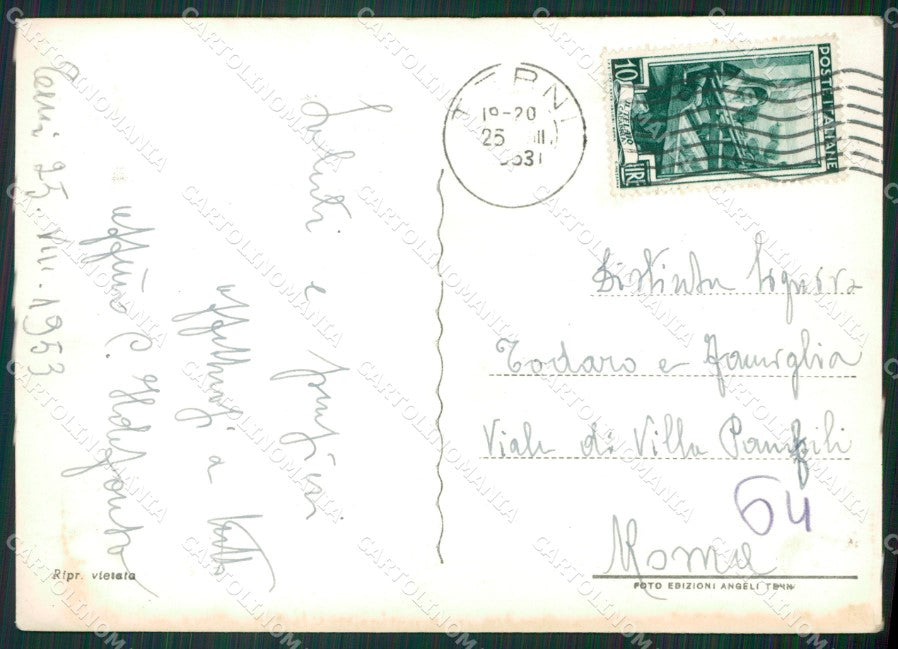 Terni 25.VIII.1953
Saluti e
affettuosi a tutti
TERNI
19-20
25 VIII
1953
POSTE ITALIANE
10
LIRE
Distinta Signora
Todaro e Famiglia
Viale di Villa Panfili
64
Roma
FOTO EDIZIONI ANGELI TERNI
Ripr. vietata
CARTOLINOMANIA